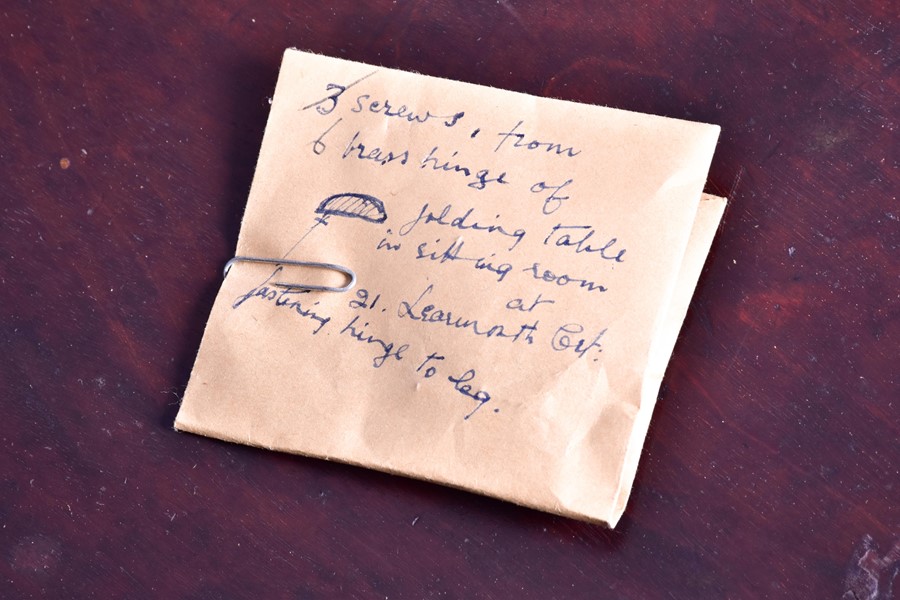 3 screws, from
6 brass hinge of
folding table
in sitting room
at
21. Learmonth Crt:
fastening hinge to leg.